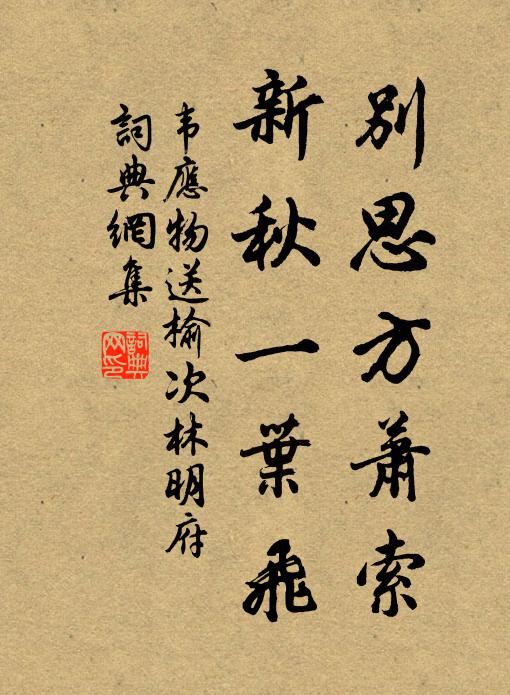 别思方蕭索
新秋一葉飛
韦應物送榆次林明府
詞典網集
詞典网印